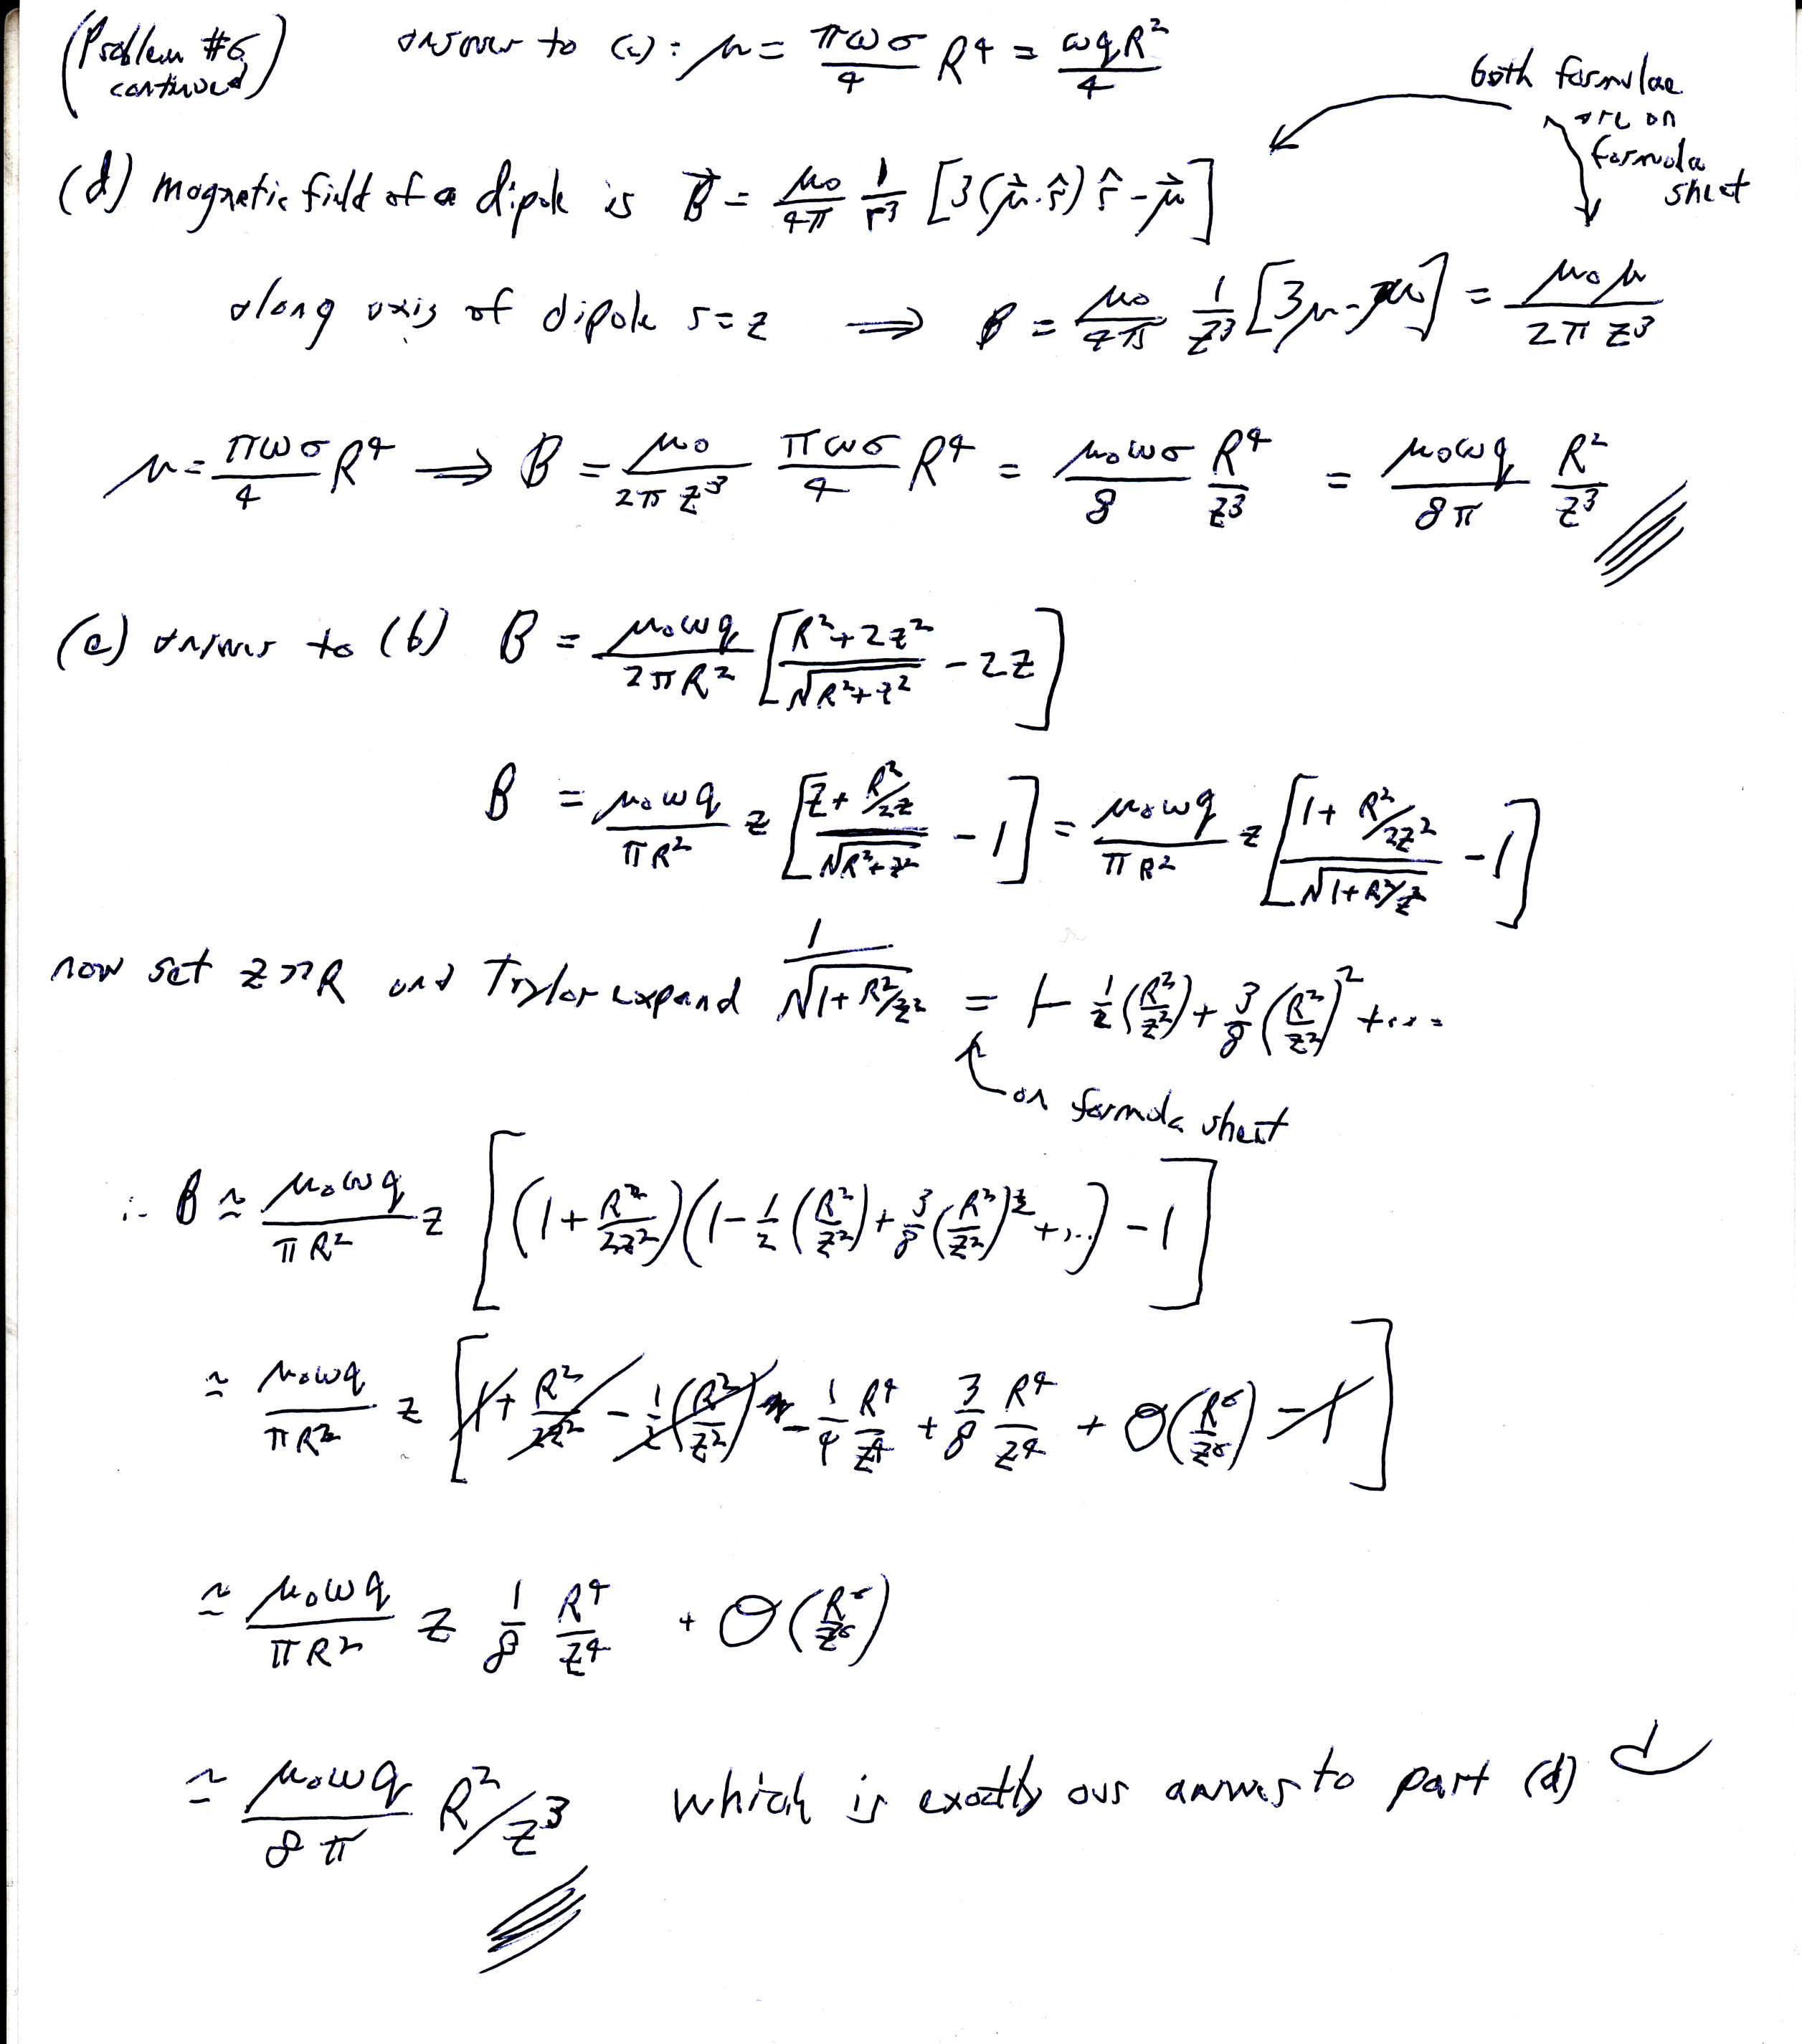 (Problem #6 continued) answer to (c): μ = πωσ/4 R⁴ = ωqR²/4
both formulae are on formula sheet
(d) magnetic field of a dipole is B⃗ = μ₀/4π 1/r³ [3(μ⃗·r̂) r̂ - μ⃗]
along axis of dipole r=z ⟹ B = μ₀/4π 1/z³ [3μ-μ] = μ₀μ/2πz³
μ = πωσ/4 R⁴ ⟹ B = μ₀/2πz³ πωσ/4 R⁴ = μ₀ωσ/8 R⁴/z³ = μ₀ωq/8π R²/z³
(e) answer to (b) B = μ₀ωq/2πR² [(R²+2z²)/√(R²+z²) - 2z]
B = μ₀ωq/πR² z [(z + R²/2z)/√(R²+z²) - 1] = μ₀ωq/πR² z [(1 + R²/2z²)/√(1+R²/z²) - 1]
now set z>>R and Taylor expand 1/√(1+R²/z²) = 1 - 1/2 (R²/z²) + 3/8 (R²/z²)² + ...
on formula sheet
∴ B ≃ μ₀ωq/πR² z [(1 + R²/2z²)(1 - 1/2 (R²/z²) + 3/8 (R²/z²)² + ...) - 1]
≃ μ₀ωq/πR² z [1 + R²/2z² - 1/2 (R²/z²) - 1/4 R⁴/z⁴ + 3/8 R⁴/z⁴ + O(R⁶/z⁶) - 1]
≃ μ₀ωq/πR² z 1/8 R⁴/z⁴ + O(R⁶/z⁶)
≃ μ₀ωq/8π R²/z³ which is exactly our answer to part (d)